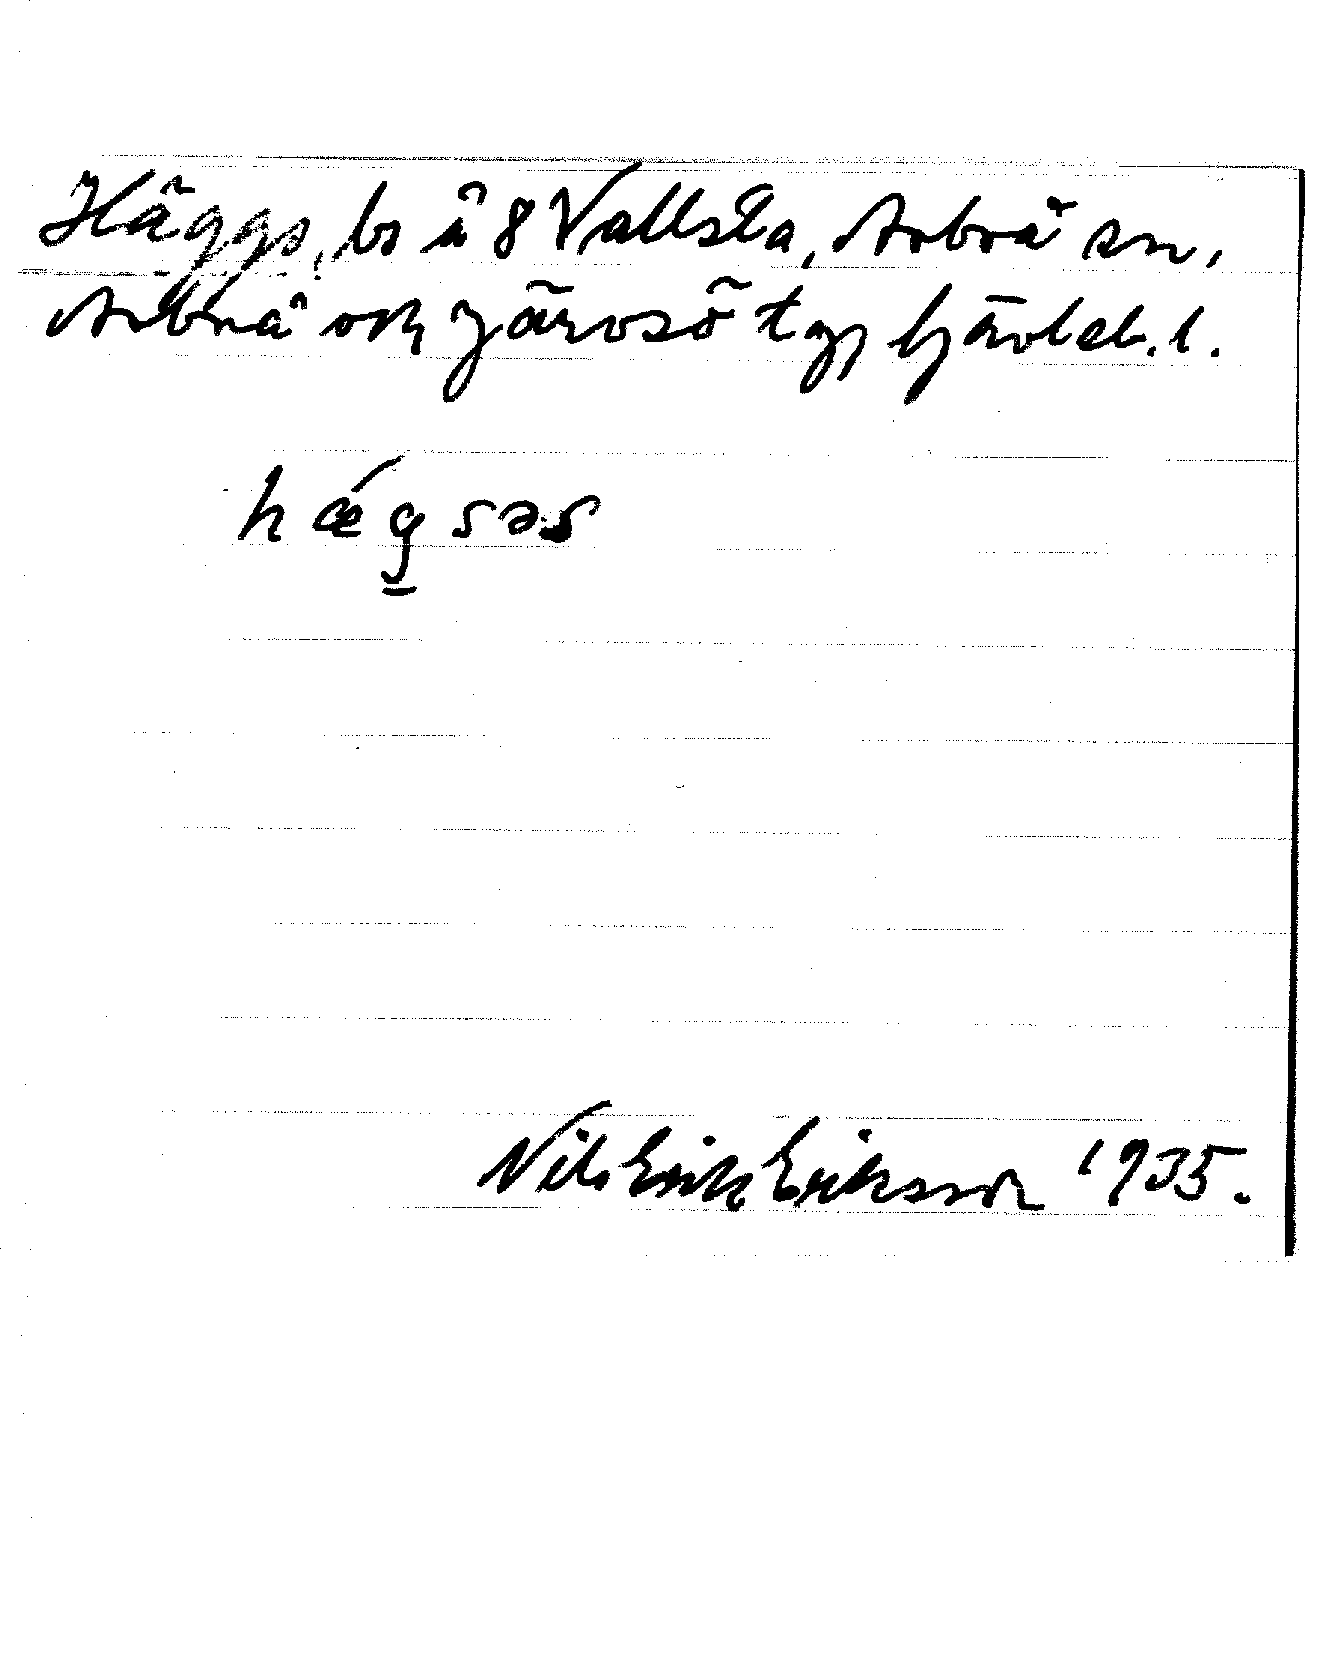 Häggs, bs å 8 Vallsta, Arbrå sn,
Arbrå och Järvsö tg, Gävleb. l.
hǽg̲səs
Nils Erik Eriksson 1935.